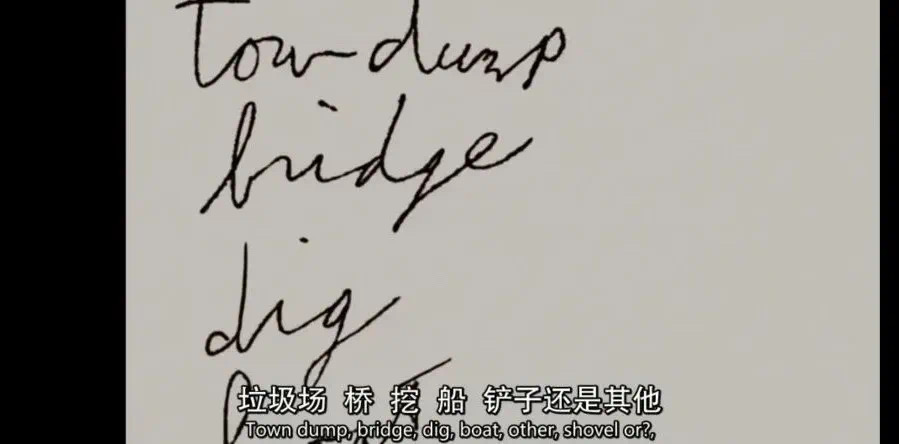 Town dump
bridge
dig
boat
垃圾场 桥 挖 船 铲子还是其他
Town dump, bridge, dig, boat, other, shovel or?,